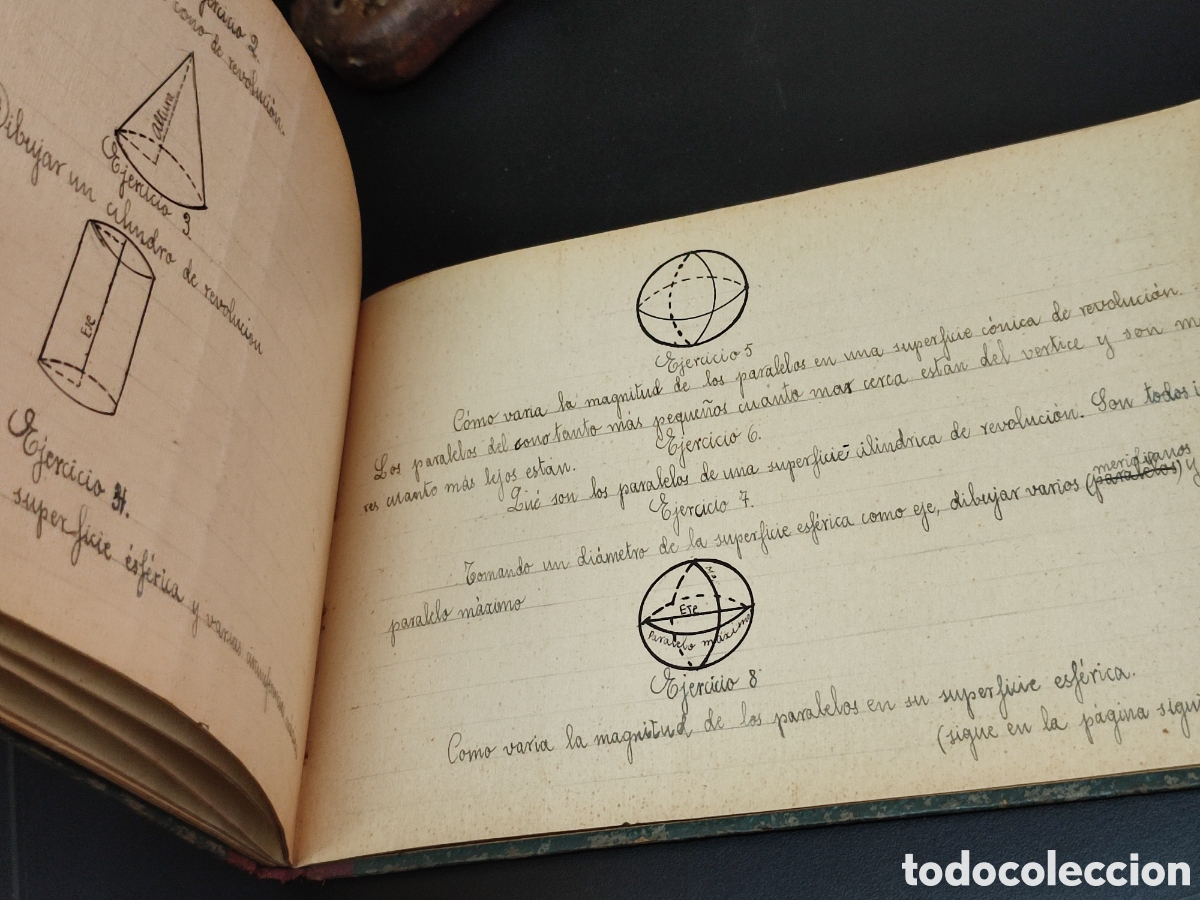 Ejercicio 2.
cono de revolución.
altura
Ejercicio 3
Dibujar un cilindro de revolución
Eje
Ejercicio 4.
superficie ésférica y varias
Ejercicio 5
Cómo varia la magnitud de los paralelos en una superficie cónica de revolución.
Los paralelos del cono tanto más pequeños cuánto mas cerca están del vertice y son m
res cuanto más lejos están.
Ejercicio 6.
Qué son los paralelos de una superficie cilindrica de revolución. Son todos i
Ejercicio 7.
Tomando un diámetro de la superficie esférica como eje, dibujar varios (paralelos) meridianos y
paralelo máximo
Eje
Paralelo máximo
Ejercicio 8
Como varia la magnitud de los paralelos en su superficie esférica.
(sigue en la página sigu
todocoleccion